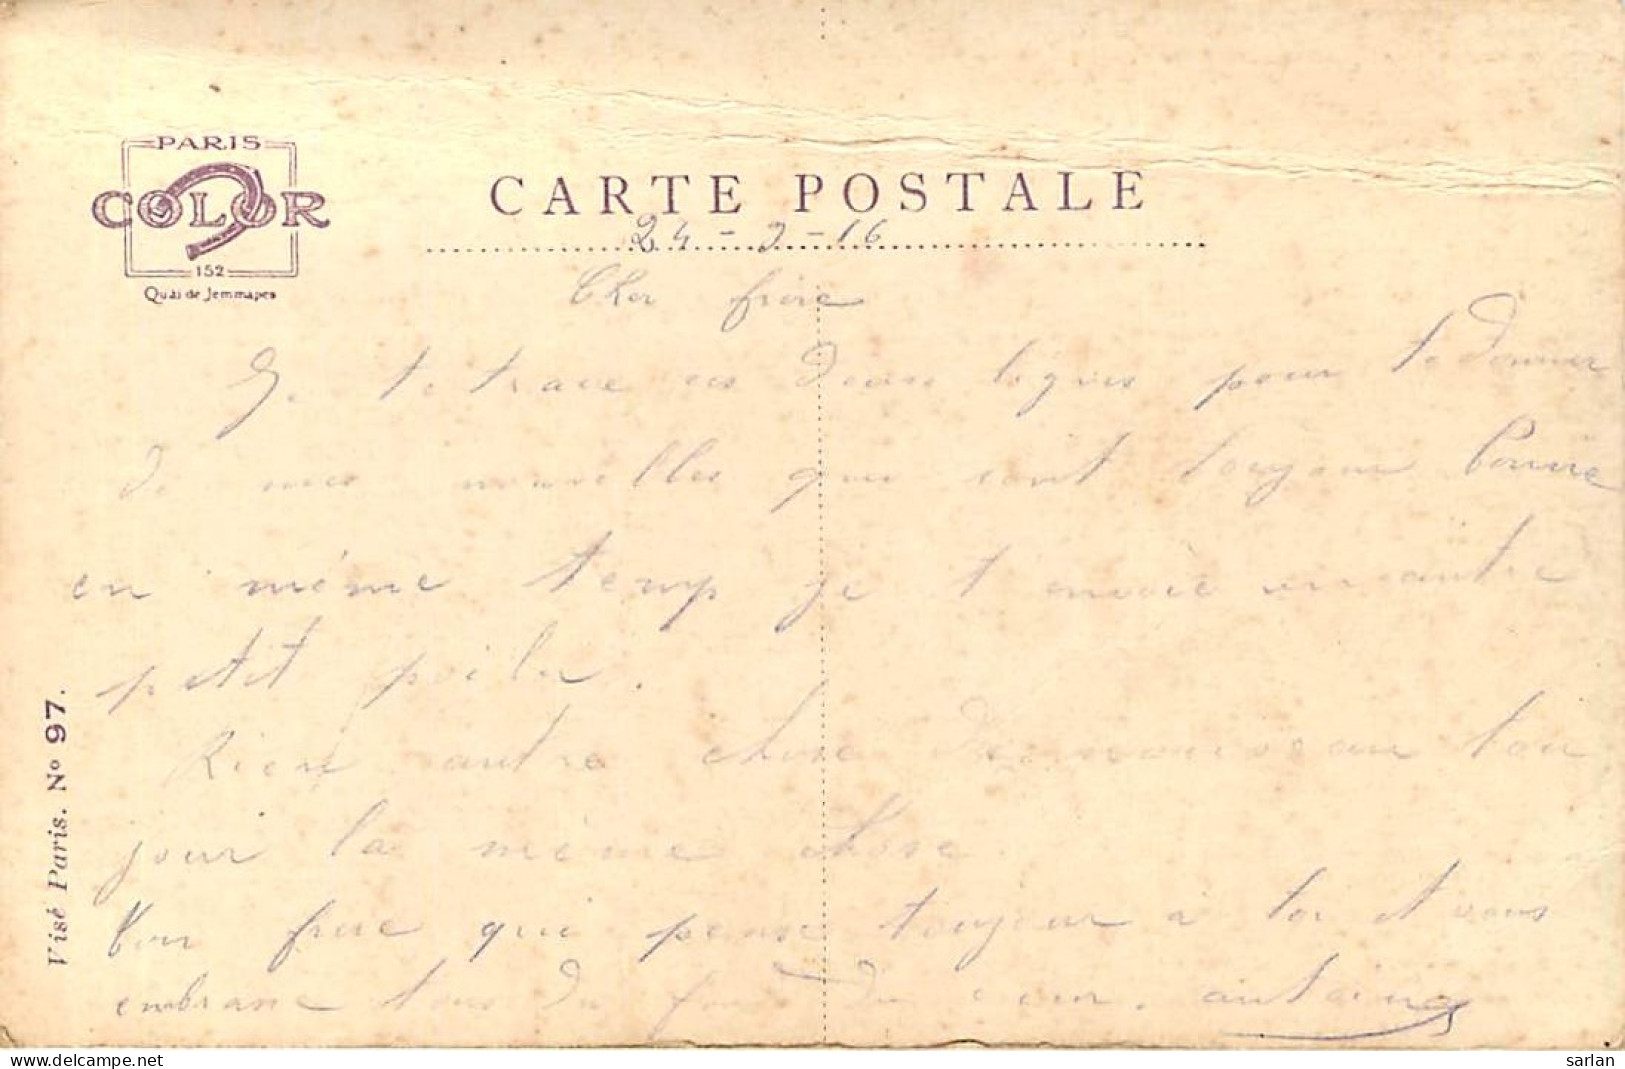 PARIS
COLOR
152
Quai de Jemmapes
CARTE POSTALE
24-2-16
Cher frère
Je te trace ces deux lignes pour te donner
de mes nouvelles que sont toujour bonne
en même temp je t envoie un autre
petit poilu.
Rien autre chose de nouveau tou
jour la même chose.
Ton frere qui pense toujour a toi et vous
embrasse tous du fond du coeur. antoine
Visé Paris. No 97.
sarlan